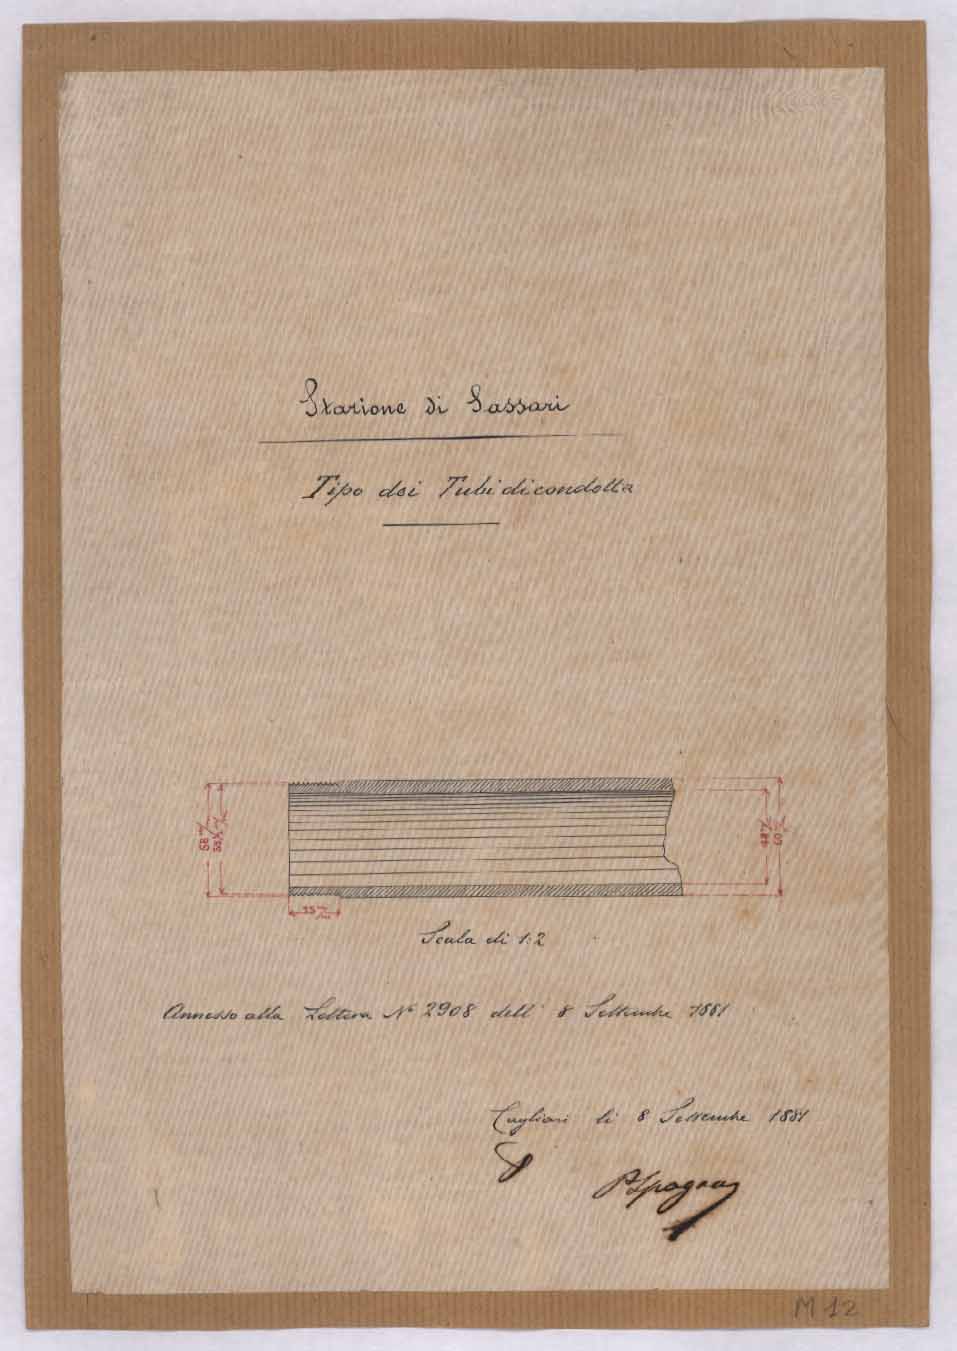 Stazione di Sassari
Tipo dei Tubi di condotta
58 m/m
60 m/m
48 m/m
Scala di 1:2
Annesso alla Lettera N° 2908 dell' 8 Settembre 1881
Cagliari li 8 Settembre 1881
M 12